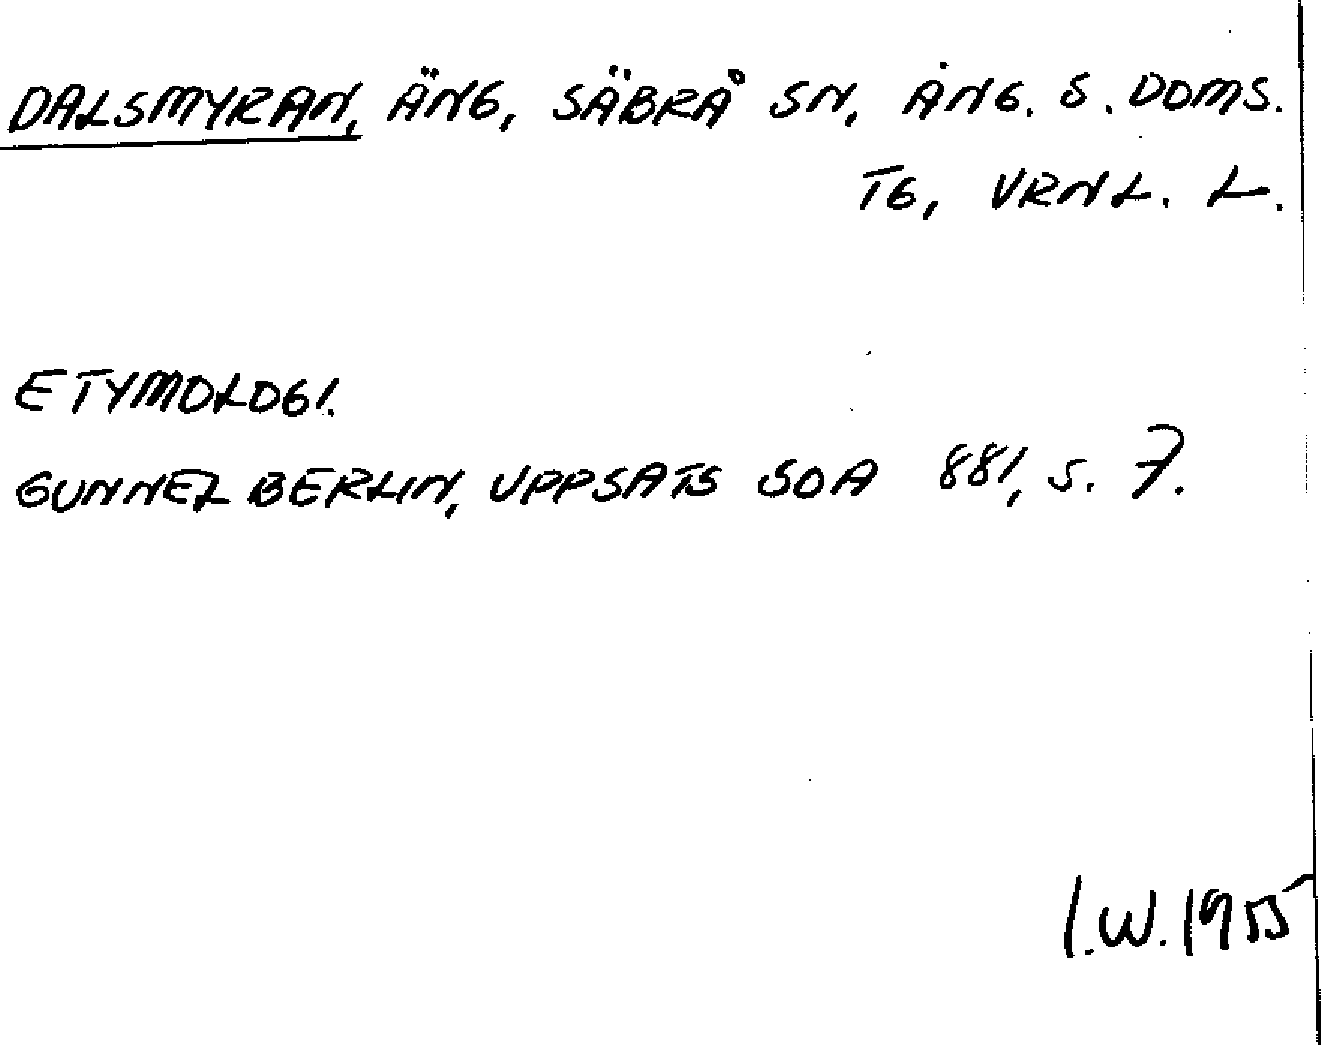 DALSMYRAN, ÄNG, SÄBRÅ SN, ÅNG. S. DOMS.
TG, VRNL. L.
ETYMOLOGI.
GUNNEL BERLIN, UPPSATS SOA 881, S. 7.
I.W. 1955